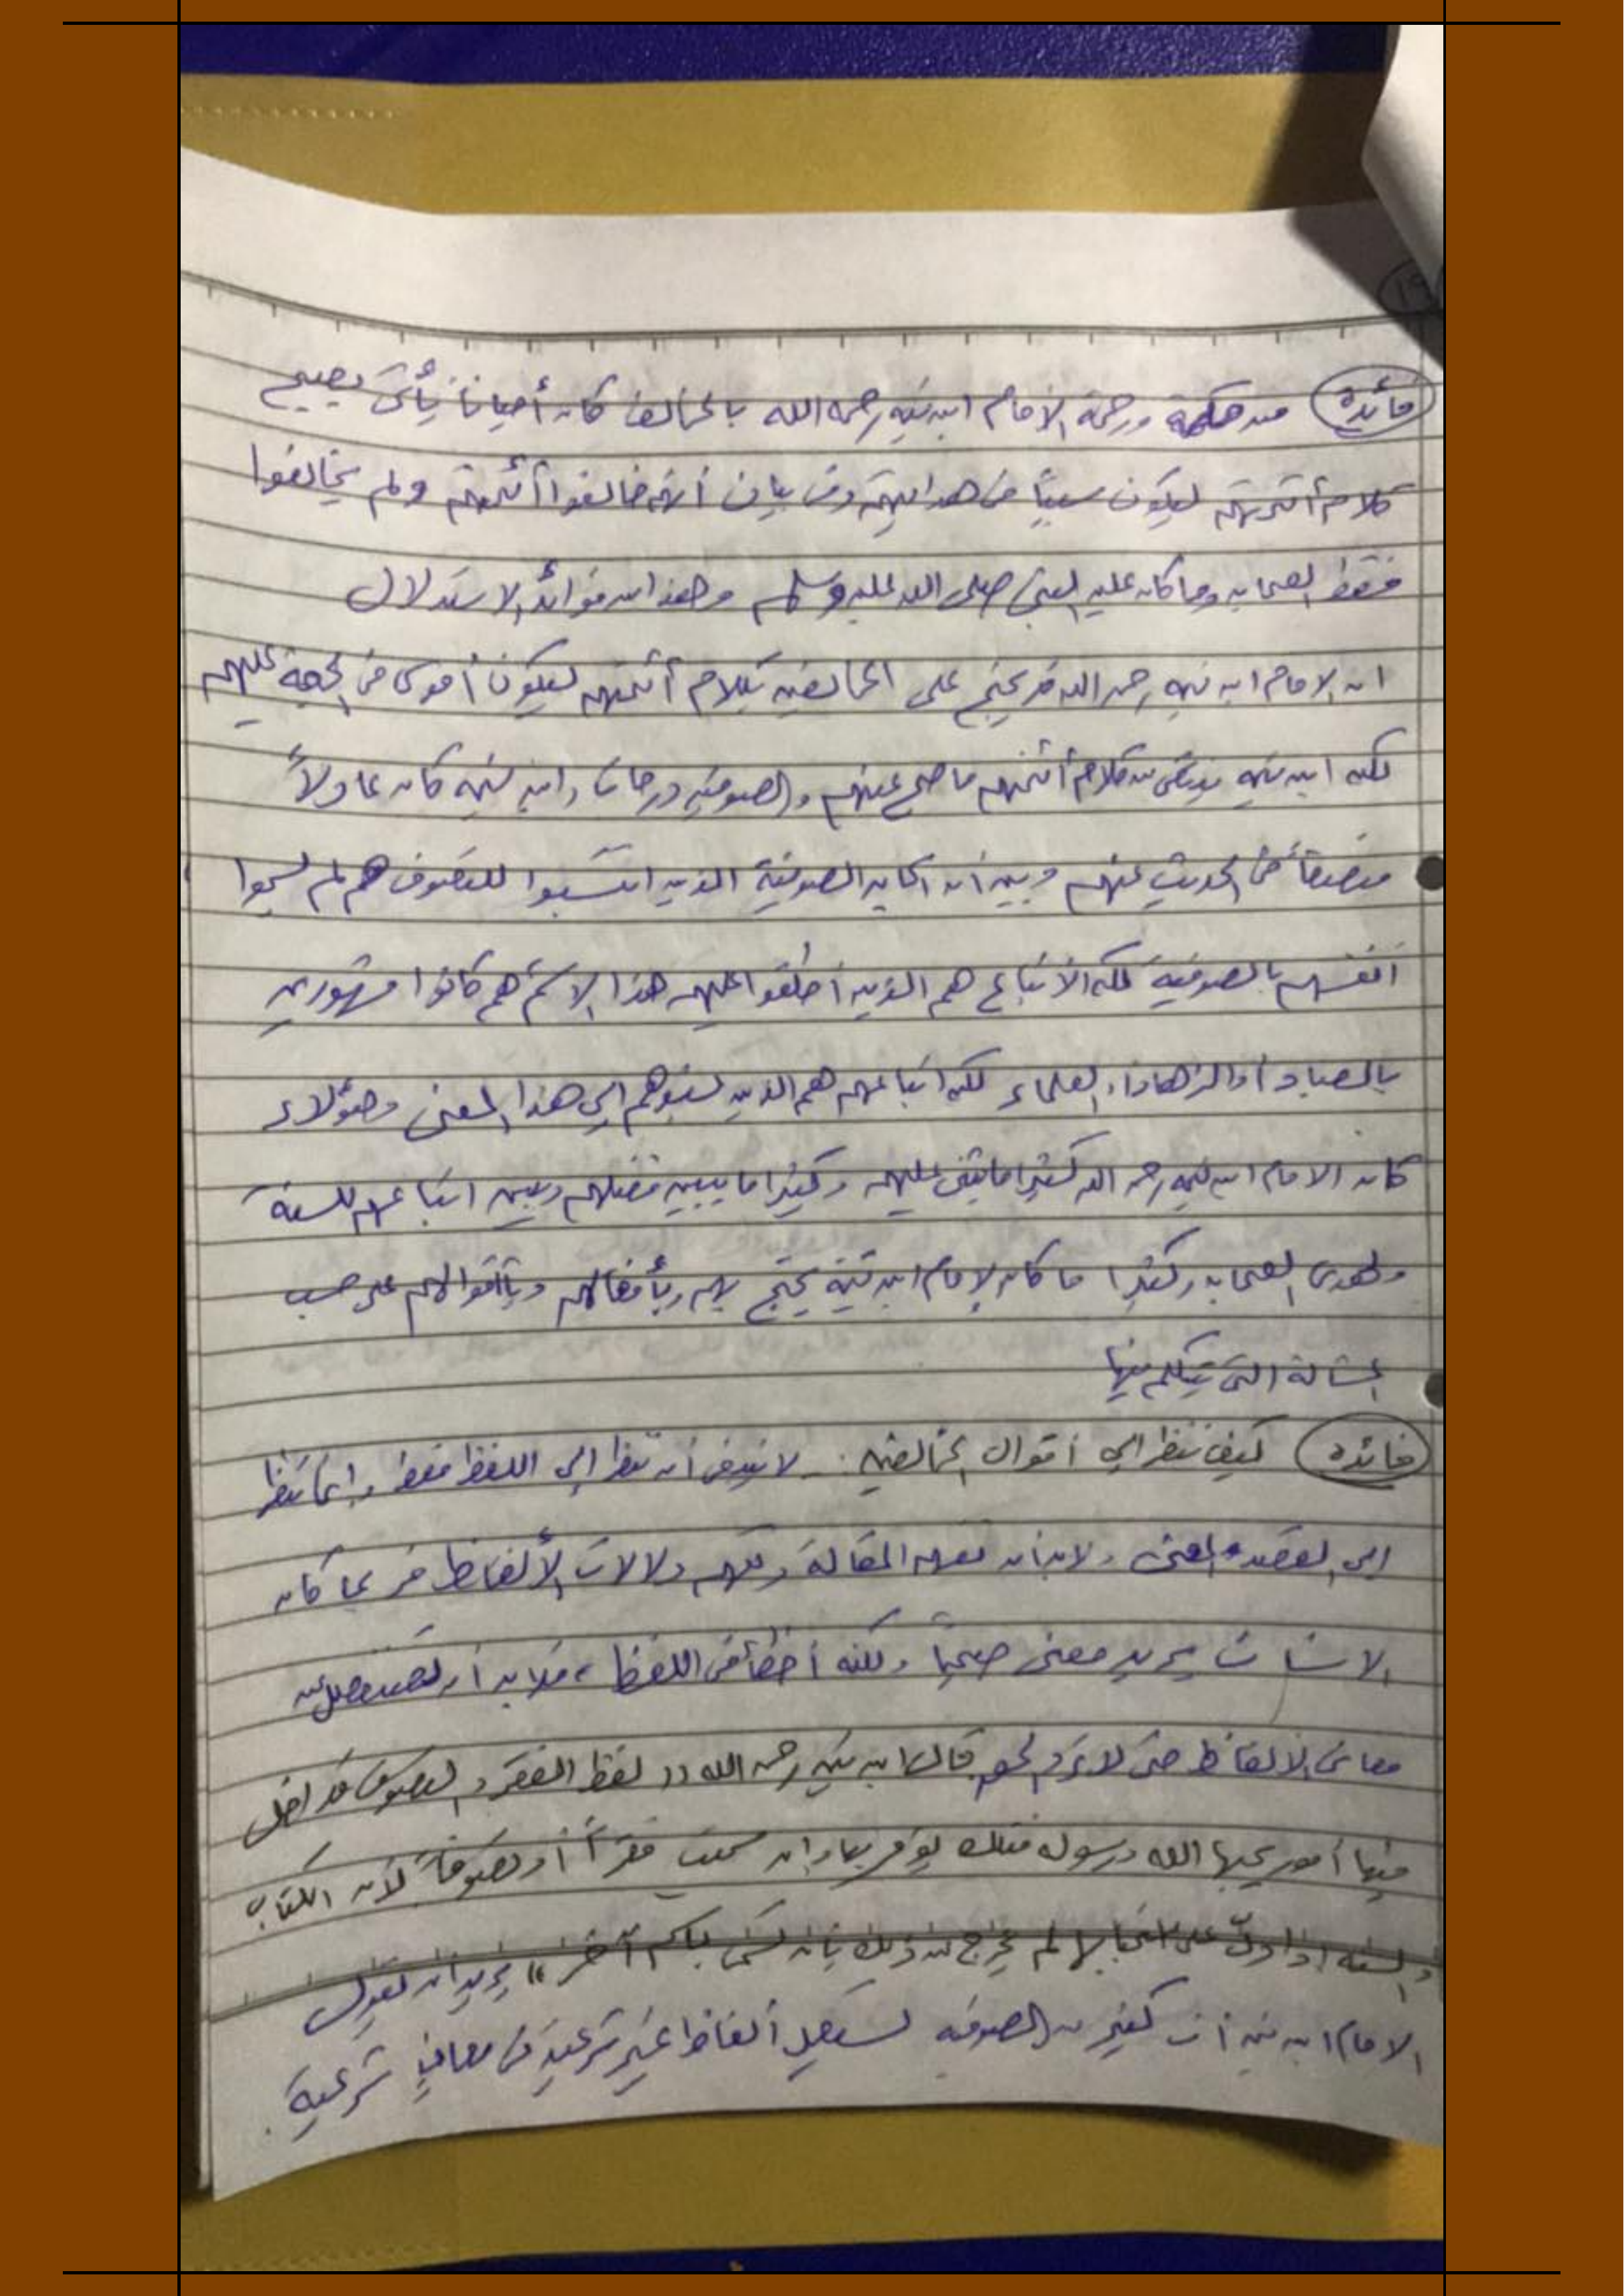 فائدة من حكمة ورحمة الامام ابن تيمية رحمه الله بالمخالف كان أحيانا يأتي بصحيح
كلام أئمتهم ليكون سبباً في هدايتهم وفي بيان أنهم خالفوا أئمتهم ولم يخالفوا
فقط الصحابة وما كان عليه النبي صلى الله عليه وسلم وهذا من فوائد الاستدلال
ان الامام ابن تيمية رحمه الله قد يحتج على المخالفين بكلام أئمتهم ليكون أقوى في الحجة عليهم
لكن ابن تيمية ينتقي من كلام أئمتهم ما صح عنهم والصوفية درجات وابن تيمية كان عادلاً
منصفاً في الحديث عنهم وبين ان اكابر الصوفية الذين انتسبوا للتصوف هم لم يسموا
انفسهم بالصوفية لكن الأتباع هم الذين أطلقوا عليهم هذا الاسم هم كانوا مشهورين
بالعباد أو الزهاد أو العلماء لكن اتباعهم هم الذين نسبوهم الي هذا المعنى وهؤلاء
كان الامام ابن تيمية رحمه الله كثيرا ما يثني عليهم وكثيرا ما يبين فضلهم ويبين اتباعهم للسنة
ولهدى الصحابة وكثيرا ما كان الإمام ابن تيمية يحتج بهم وبأفعالهم وبأقوالهم على حسب
المسألة التي يتكلم فيها
فائدة كيف ننظر الي أقوال المخالفين . لا ينبغي أن ننظر الي اللفظ فقط وإنما ننظر
الي القصد والمعنى ولابد أن نفهم المقالة ونفهم دلالات الألفاظ فربما كان
الانسان يريد معنى صحيحاً ولكنه أخطأ في اللفظ ، فلابد أن نستفصل عن
معاني الألفاظ حتى لا نرد الحق قال ابن تيمية رحمه الله (( لفظ الفقر والتصوف قد أدخل
فيها أمور يحبها الله ورسوله فتلك يؤمر بها وان سميت فقراً أو تصوفاً لأن الكتاب
والسنة اذا دلّ على استحبابها لم يخرج من ذلك بأن تسمى باسم آخر )) يريد ان يقول
الامام ابن تيمية أن كثير من الصوفية يستعمل ألفاظا غير شرعية في معاني شرعية .